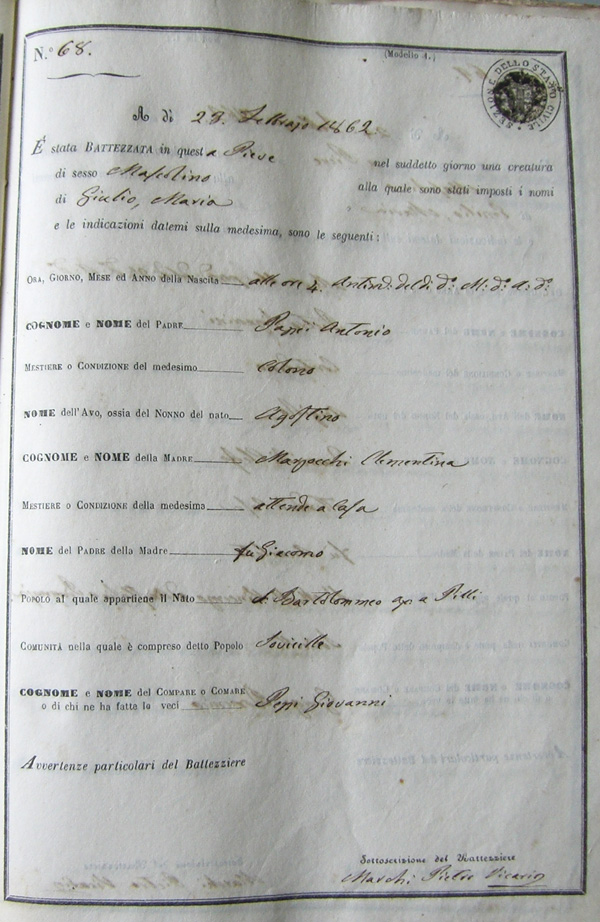 N.º 68.
(Modello A.)
SEZIONE DELLO STATO CIVILE
A dì 23. Febbrajo 1862.
È stata BATTEZZATA in questa Pieve nel suddetto giorno una creatura
di sesso Mascolino alla quale sono stati imposti i nomi
di Giulio, Maria
e le indicazioni datemi sulla medesima, sono le seguenti:
ORA, GIORNO, MESE ED ANNO della Nascita alle ore 4. Antimd: del dì d.º M: d.º A: d.º
COGNOME e NOME del PADRE Antonio
MESTIERE O CONDIZIONE del medesimo Colono
NOME dell'Avo, ossia del NONNO del nato Agostino
COGNOME e NOME della MADRE Clementina
MESTIERE O CONDIZIONE della medesima attende a Casa
NOME del PADRE della Madre fù Giacomo
POPOLO al quale appartiene il Nato Bartolommeo a Pilli
COMUNITÀ nella quale è compreso detto Popolo Sovicille
COGNOME e NOME del COMPARE O COMARE
o di chi ne ha fatte le veci Giovanni
Avvertenze particolari del Battezziere
Sottoscrizione del Battezziere
Marchi Pietro Vicario